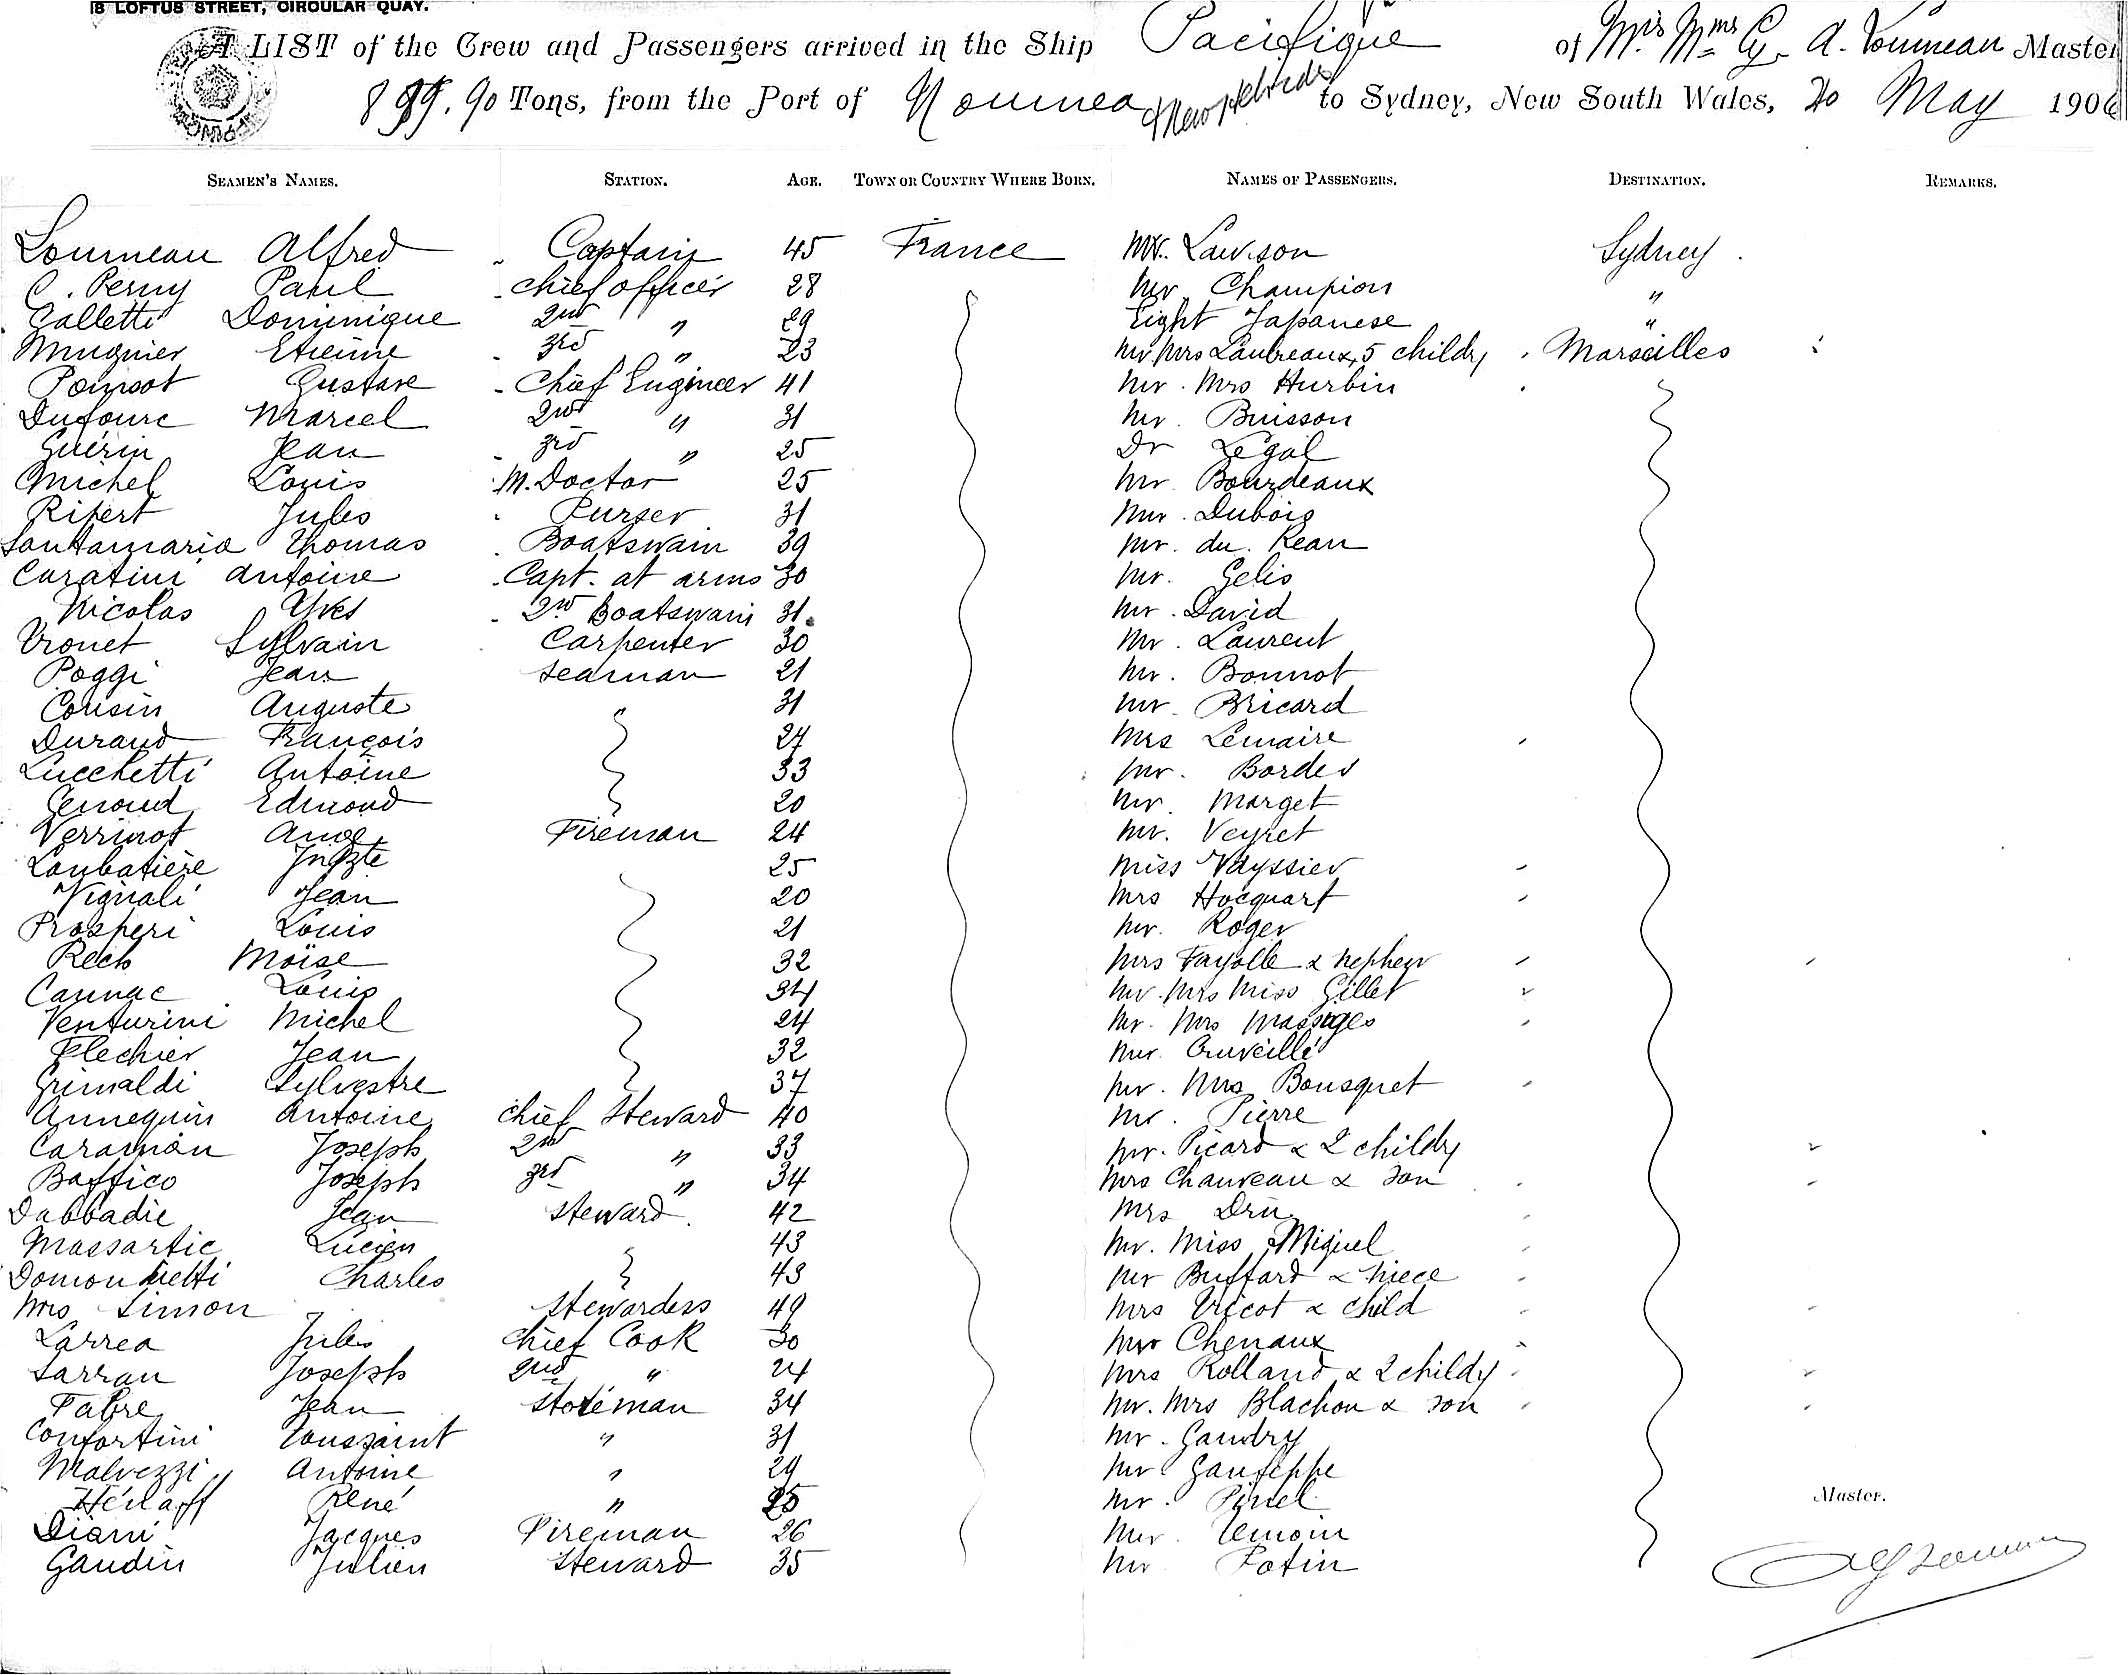 18 LOFTUS STREET, CIRCULAR QUAY.
A LIST of the Crew and Passengers arrived in the Ship Pacifique of Mis Mms Cy. A. Loumeau Master
899.90 Tons, from the Port of Noumea & New Hebrides to Sydney, New South Wales, 20 May 1906
SEAMEN'S NAMES. STATION. AGE. TOWN OR COUNTRY WHERE BORN. NAMES OF PASSENGERS. DESTINATION. REMARKS.
Loumeau Alfred Captain 45 France Mr. Lawson Sydney
C. Perny Paul chief officer 28 Mr Champion "
Galletti Dominique 2nd " 29 Eight Japanese "
Mugnier Etienne 3rd " 23 Mr Mrs Laubreaux, 5 childr. Marseilles
Poinsot Gustave Chief Engineer 41 Mr. Mrs Hurbin
Dufourc Marcel 2nd " 31 Mr. Buisson
Guérin Jean 3rd " 25 Dr Légal
Michel Louis M. Doctor 25 Mr. Bourdeaux
Ripert Jules Purser 31 Mr. Dubois
Santamaria Thomas Boatswain 39 Mr. du Reau
Caratini Antoine Capt. at arms 30 Mr. Gelis
Nicolas Yves 2nd Boatswain 31. Mr. David
Vronet Sylvain Carpenter 30 Mr. Laurent
Poggi Jean Seaman 21 Mr. Bonnot
Cousin Auguste 31 Mr. Bricard
Durand François 27 Mrs Lemaire
Lucchetti Antoine 33 Mr. Bordes
Genoud Edmond 20 Mr. Marget
Verrinot Ange Fireman 24 Mr. Veyret
Loubatière 25 Miss Vayssier
Vignali Jean 20 Mrs Hocquart
Prosperi Louis 21 Mr. Roger
Rech Moïse 32 Mrs Fayolle & nephew
Cannac Louis 34 Mr. Mrs Miss Gillet
Venturini Michel 24 Mr. Mrs Massoges
Flechier Jean 32 Mr. Cruveillé
Grimaldi Sylvestre 37 Mr. Mrs Bousquet
Annequin Antoine chief Steward 40 Mr. Pierre
Caraman Joseph 2nd " 33 Mr. Picard & 2 childr.
Baffico Joseph 3rd " 34 Mrs Chauveau & son
Dabbadie Jean steward 42 Mrs Dru
Massartic Lucien 43 Mr. Miss Miguel
Charles 43 Mr Buffard & niece
Mrs Simon Stewardess 49 Mrs Vricot & child
Larrea Jules Chief Cook 30 Mr Chenaux
Sarran Joseph 2nd " 24 Mrs Rolland & 2 childr.
Fabre Jean Storeman 34 Mr. Mrs Blachon & son
Confortini Toussaint " 31 Mr. Gaudry
Malvezzi Antoine " 29 Mr Gauseppe
René " 25 Mr. Pinel
Diani Jacques Fireman 26 Mr. Lemoin
Gaudin Julien Steward 35 Mr Potin
Master.